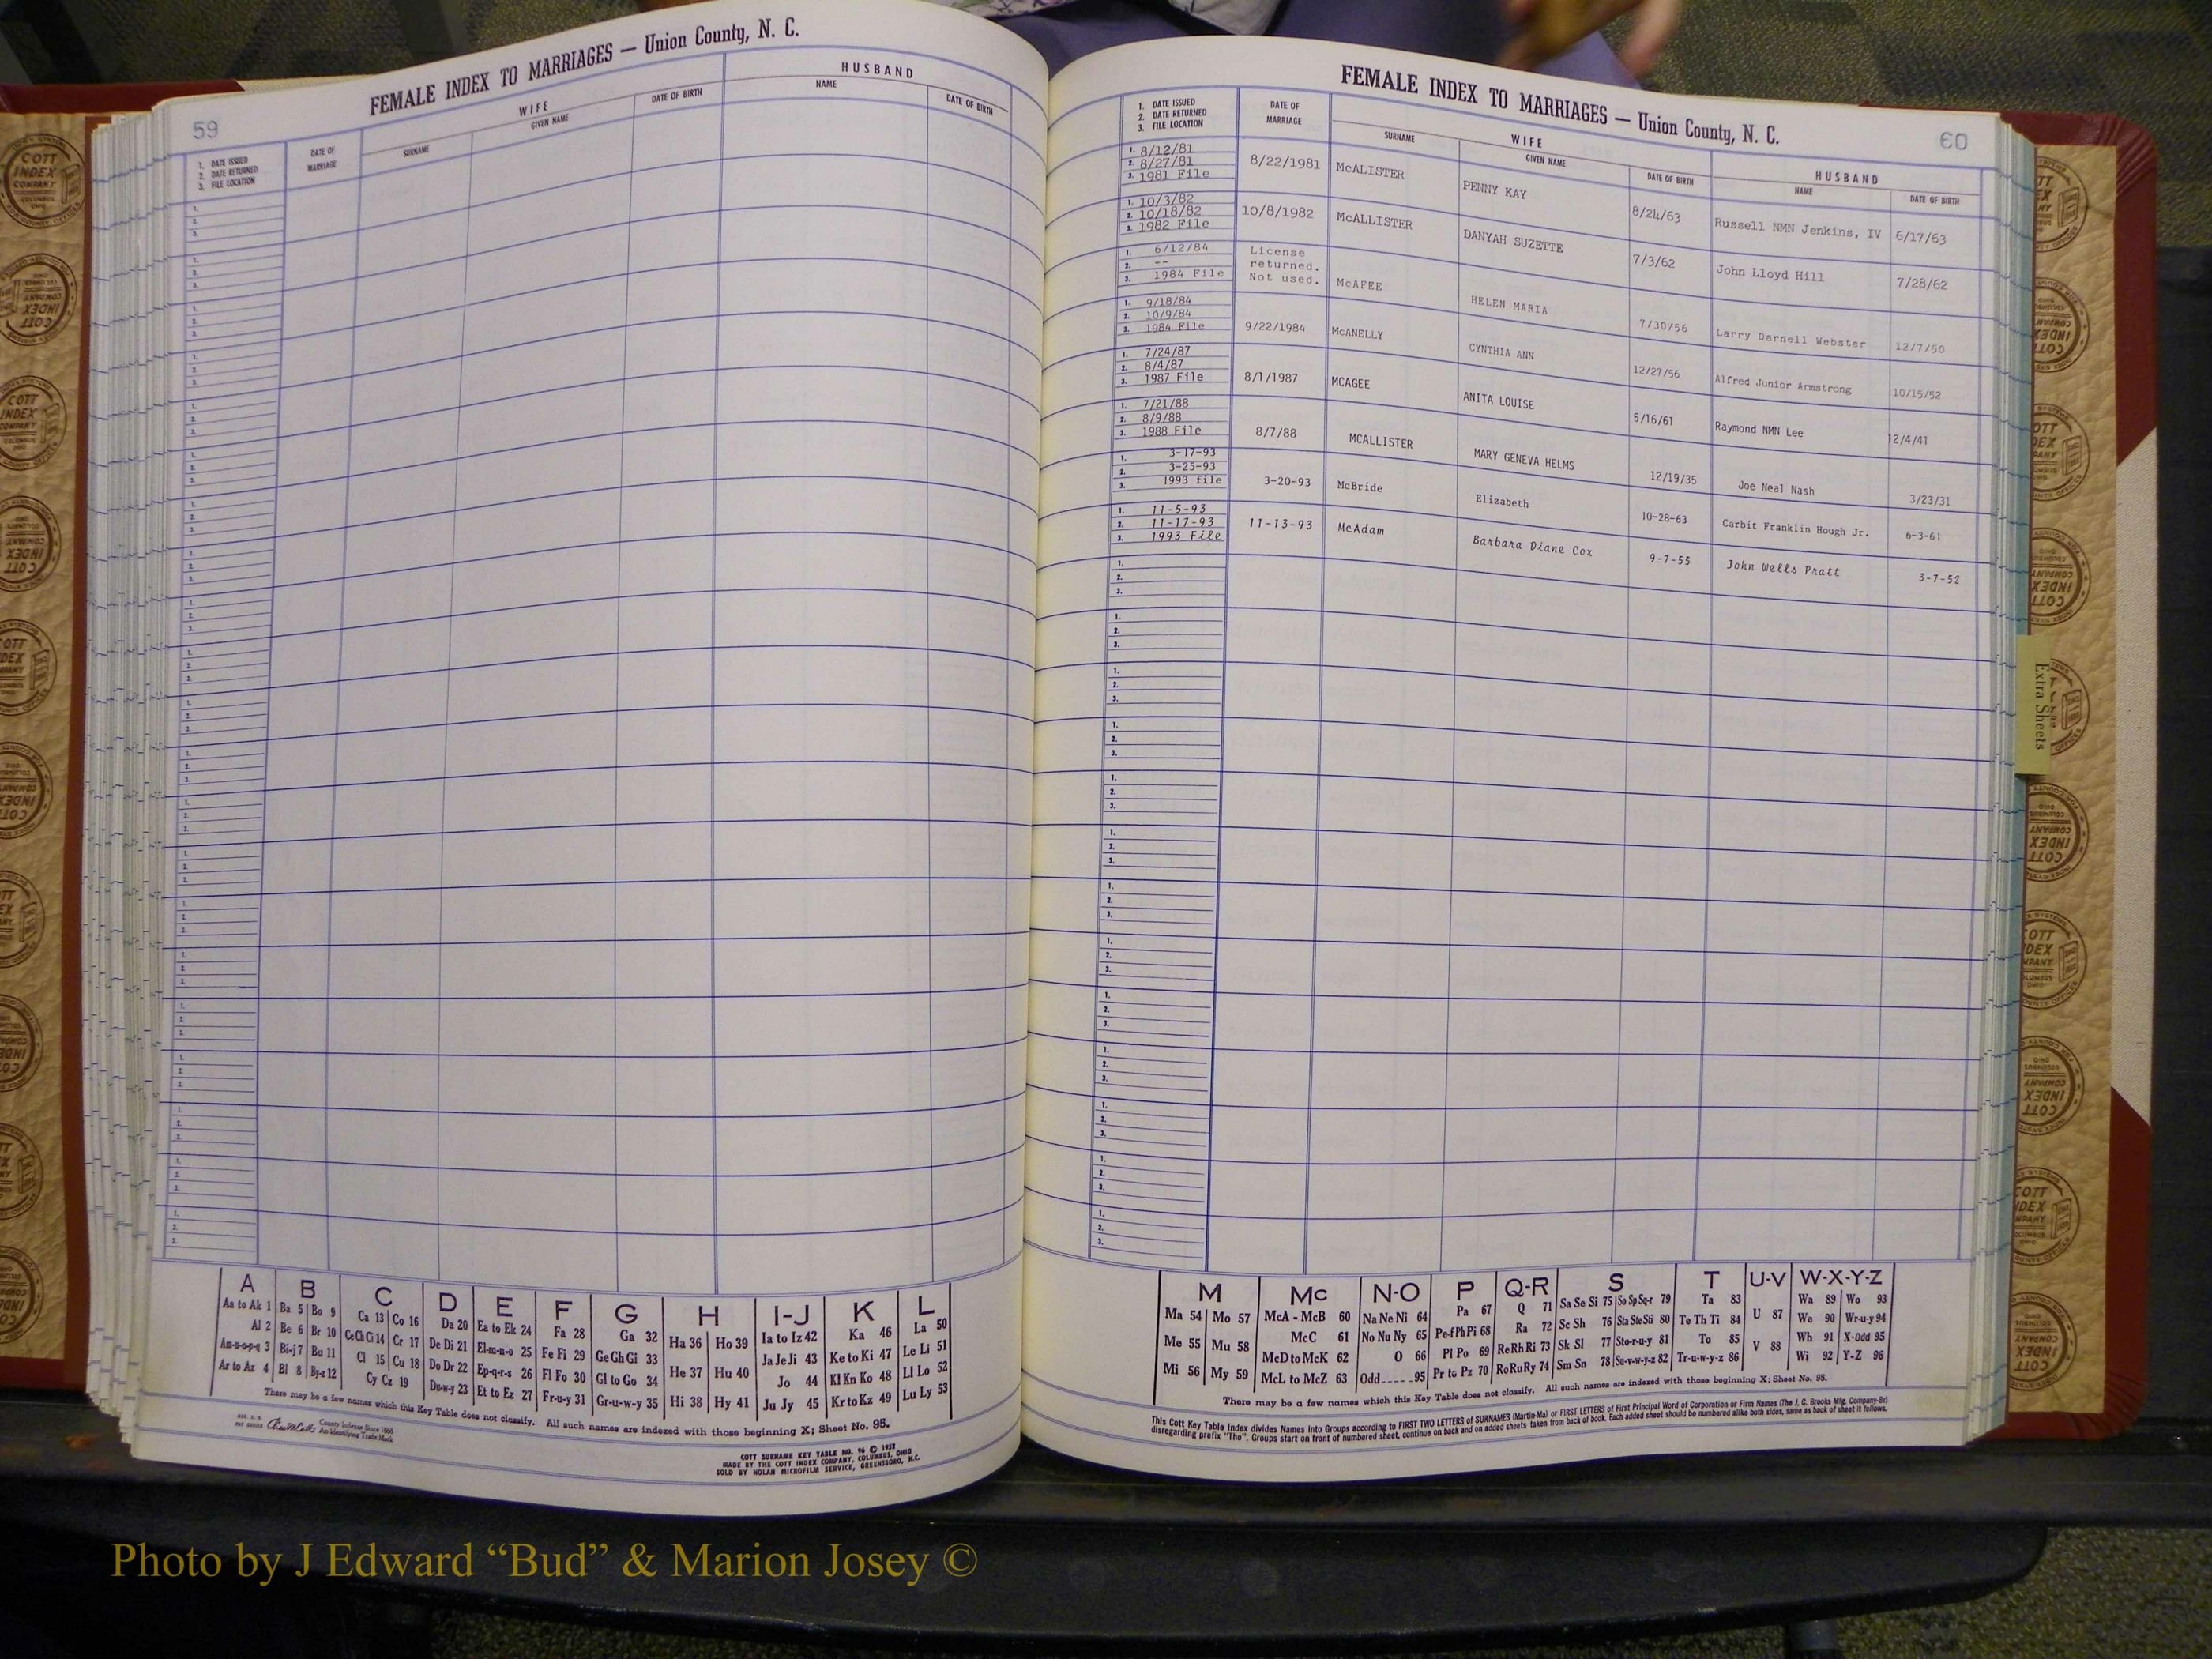 FEMALE INDEX TO MARRIAGES — Union County, N. C.
59
WIFE
HUSBAND
1. DATE ISSUED
2. DATE RETURNED
3. FILE LOCATION
DATE OF MARRIAGE
SURNAME
GIVEN NAME
DATE OF BIRTH
NAME
DATE OF BIRTH
A B C D E F G H I-J K L
Aa to Ak 1 Ba 5 Bo 9 Ca 13 Co 16 Da 20 Ea to Ek 24 Fa 28 Ga 32 Ha 36 Ho 39 Ia to Iz 42 Ka 46 La 50
Al 2 Be 6 Br 10 Ce Ch Ci 14 Cr 17 De Di 21 El-m-n-o 25 Fe Fi 29 Ge Gh Gi 33 Ja Je Ji 43 Ke to Ki 47 Le Li 51
Am-n-o-p-q 3 Bi-j 7 Bu 11 Cl 15 Cu 18 Do Dr 22 Ep-q-r-s 26 Fl Fo 30 Gl to Go 34 He 37 Hu 40 Jo 44 Kl Kn Ko 48 Ll Lo 52
Ar to Az 4 Bl 8 By-z 12 Cy Cz 19 Du-w-y 23 Et to Ez 27 Fr-u-y 31 Gr-u-w-y 35 Hi 38 Hy 41 Ju Jy 45 Kr to Kz 49 Lu Ly 53
There may be a few names which this Key Table does not classify. All such names are indexed with those beginning X; Sheet No. 95.
County Indexes Since 1888
An Identifying Trade Mark
COTT SURNAME KEY TABLE NO. 96 © 1957
MADE BY THE COTT INDEX COMPANY, COLUMBUS, OHIO
SOLD BY NOLAN MICROFILM SERVICE, GREENSBORO, N.C.
FEMALE INDEX TO MARRIAGES — Union County, N. C.
60
1. DATE ISSUED
2. DATE RETURNED
3. FILE LOCATION
DATE OF MARRIAGE
WIFE
SURNAME
GIVEN NAME
DATE OF BIRTH
HUSBAND
NAME
DATE OF BIRTH
1. 8/12/81
2. 8/27/81
3. 1981 File
8/22/1981 McALISTER PENNY KAY 8/24/63 Russell NMN Jenkins, IV 6/17/63
1. 10/3/82
2. 10/18/82
3. 1982 File
10/8/1982 McALLISTER DANYAH SUZETTE 7/3/62 John Lloyd Hill 7/28/62
1. 6/12/84
2. --
3. 1984 File
License
returned.
Not used.
McAFEE HELEN MARIA 7/30/56 Larry Darnell Webster 12/7/50
1. 9/18/84
2. 10/9/84
3. 1984 File
9/22/1984 McANELLY CYNTHIA ANN 12/27/56 Alfred Junior Armstrong 10/15/52
1. 7/24/87
2. 8/4/87
3. 1987 File
8/1/1987 MCAGEE ANITA LOUISE 5/16/61 Raymond NMN Lee 12/4/41
1. 7/21/88
2. 8/9/88
3. 1988 File
8/7/88 MCALLISTER MARY GENEVA HELMS 12/19/35 Joe Neal Nash 3/23/31
1. 3-17-93
2. 3-25-93
3. 1993 file
3-20-93 McBride Elizabeth 10-28-63 Carbit Franklin Hough Jr. 6-3-61
1. 11-5-93
2. 11-17-93
3. 1993 File
11-13-93 McAdam Barbara Diane Cox 9-7-55 John Wells Pratt 3-7-52
Extra Sheets
M Mc N-O P Q-R S T U-V W-X-Y-Z
Ma 54 Mo 57 McA - McB 60 Na Ne Ni 64 Pa 67 Q 71 Sa Se Si 75 So Sp Sq-r 79 Ta 83 U 87 Wa 89 Wo 93
Me 55 Mu 58 McC 61 No Nu Ny 65 Pe-f Ph Pi 68 Ra 72 Sc Sh 76 Sta Ste Sti 80 Te Th Ti 84 We 90 Wr-u-y 94
McD to McK 62 O 66 Pl Po 69 Re Rh Ri 73 Sk Sl 77 Sto-r-u-y 81 To 85 V 88 Wh 91 X-Odd 95
Mi 56 My 59 McL to McZ 63 Odd-----95 Pr to Pz 70 Ro Ru Ry 74 Sm Sn 78 Su-v-w-y-z 82 Tr-u-w-y-z 86 Wi 92 Y-Z 96
There may be a few names which this Key Table does not classify. All such names are indexed with those beginning X; Sheet No. 95.
This Cott Key Table Index divides Names Into Groups according to FIRST TWO LETTERS of SURNAMES (Martin-Ma) or FIRST LETTERS of First Principal Word of Corporation or Firm Names (The J. C. Brooks Mfg. Company-Br)
disregarding prefix "The". Groups start on front of numbered sheet, continue on back and on added sheets taken from back of book. Each added sheet should be numbered alike both sides, same as back of sheet it follows.
Photo by J Edward “Bud” & Marion Josey ©